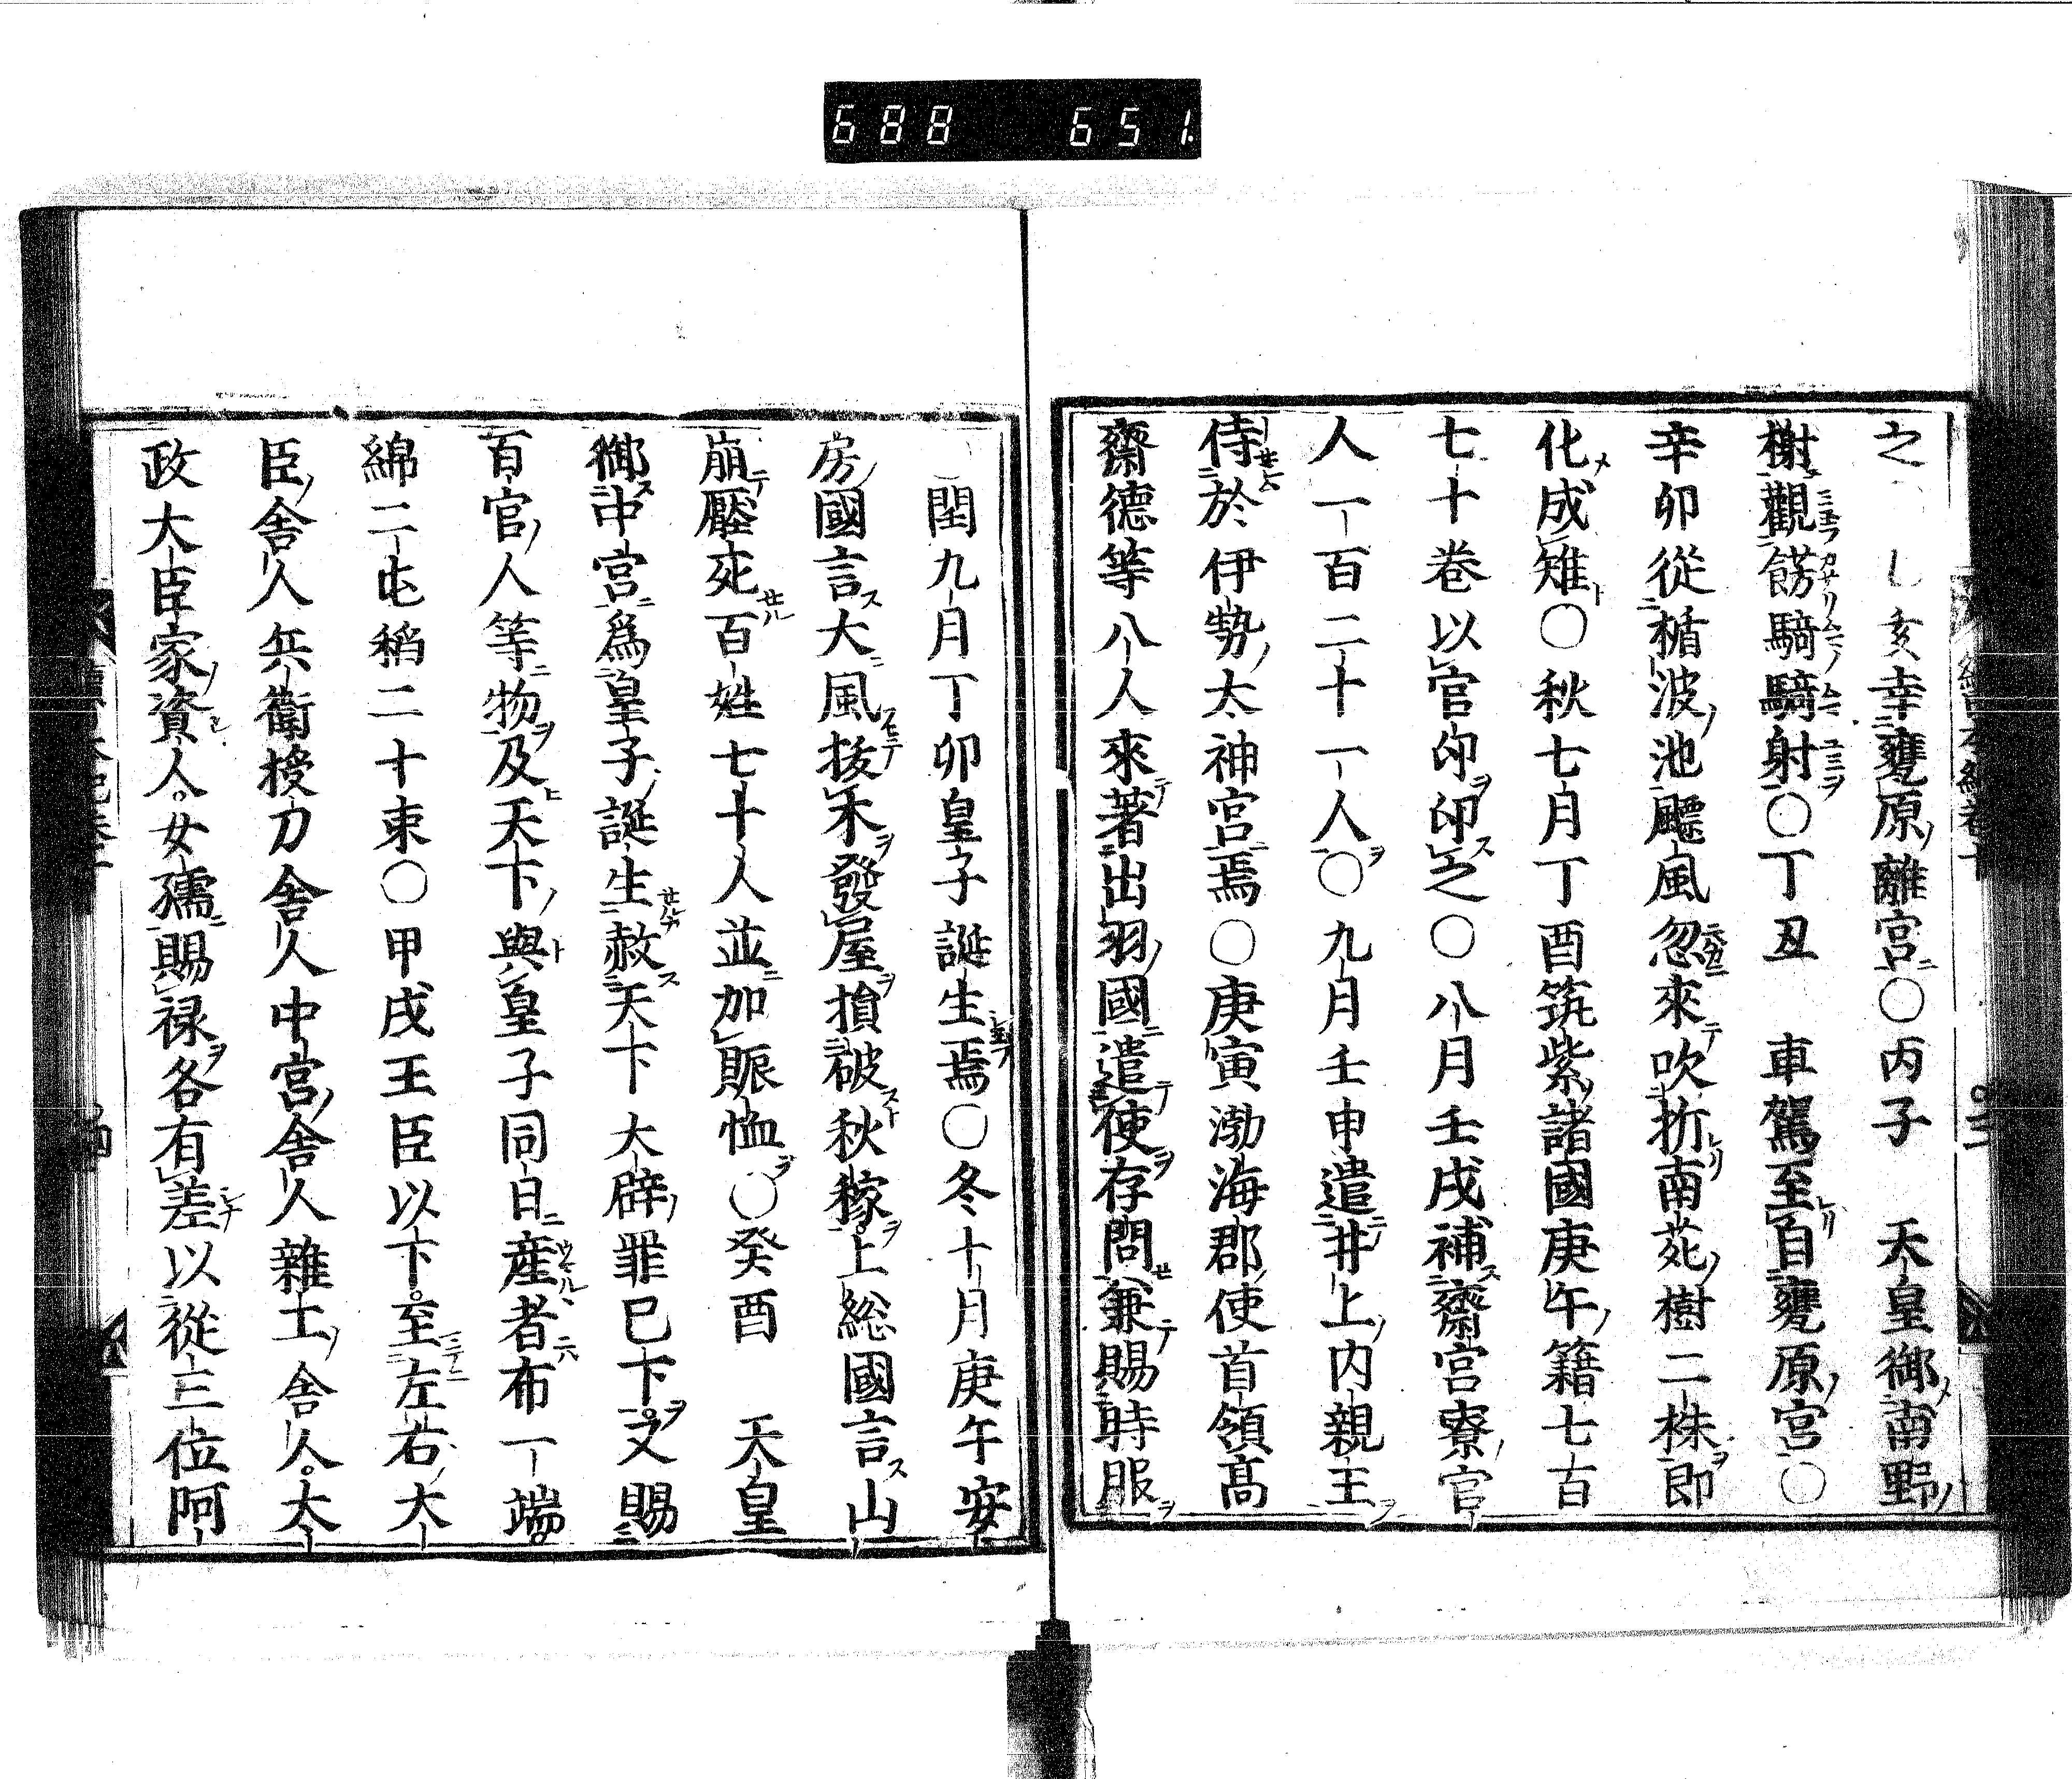 688 651
之 乙亥幸甕原離宮○丙子 天皇御南野
榭觀餝騎騎射○丁丑 車駕至自甕原宮○
辛卯從楯波池飄風忽來吹折南苑樹二株即
化成雉○秋七月丁酉筑紫諸國庚午籍七百
七十巻以官印印之○八月壬戌補齋宮寮官
人一百二十一人○九月壬申遣井上內親王
侍於伊勢太神宮焉○庚寅渤海郡使首領髙
齋德等八人來著出羽國遣使存問兼賜時服
閏九月丁卯皇子誕生焉○冬十月庚午安
房國言大風抜木發屋損破秋稼上総國言山
崩壓死百姓七十人並加賑恤○癸酉 天皇
御中宮爲皇子誕生赦天下大辟罪已下又賜
百官人等物及天下與皇子同日産者布一端
綿二屯稻二十束○甲戌王臣以下至左右大
臣舎人兵衛授刀舎人中宮舎人雜工舎人太
政大臣家資人女孺賜禄各有差以從三位阿